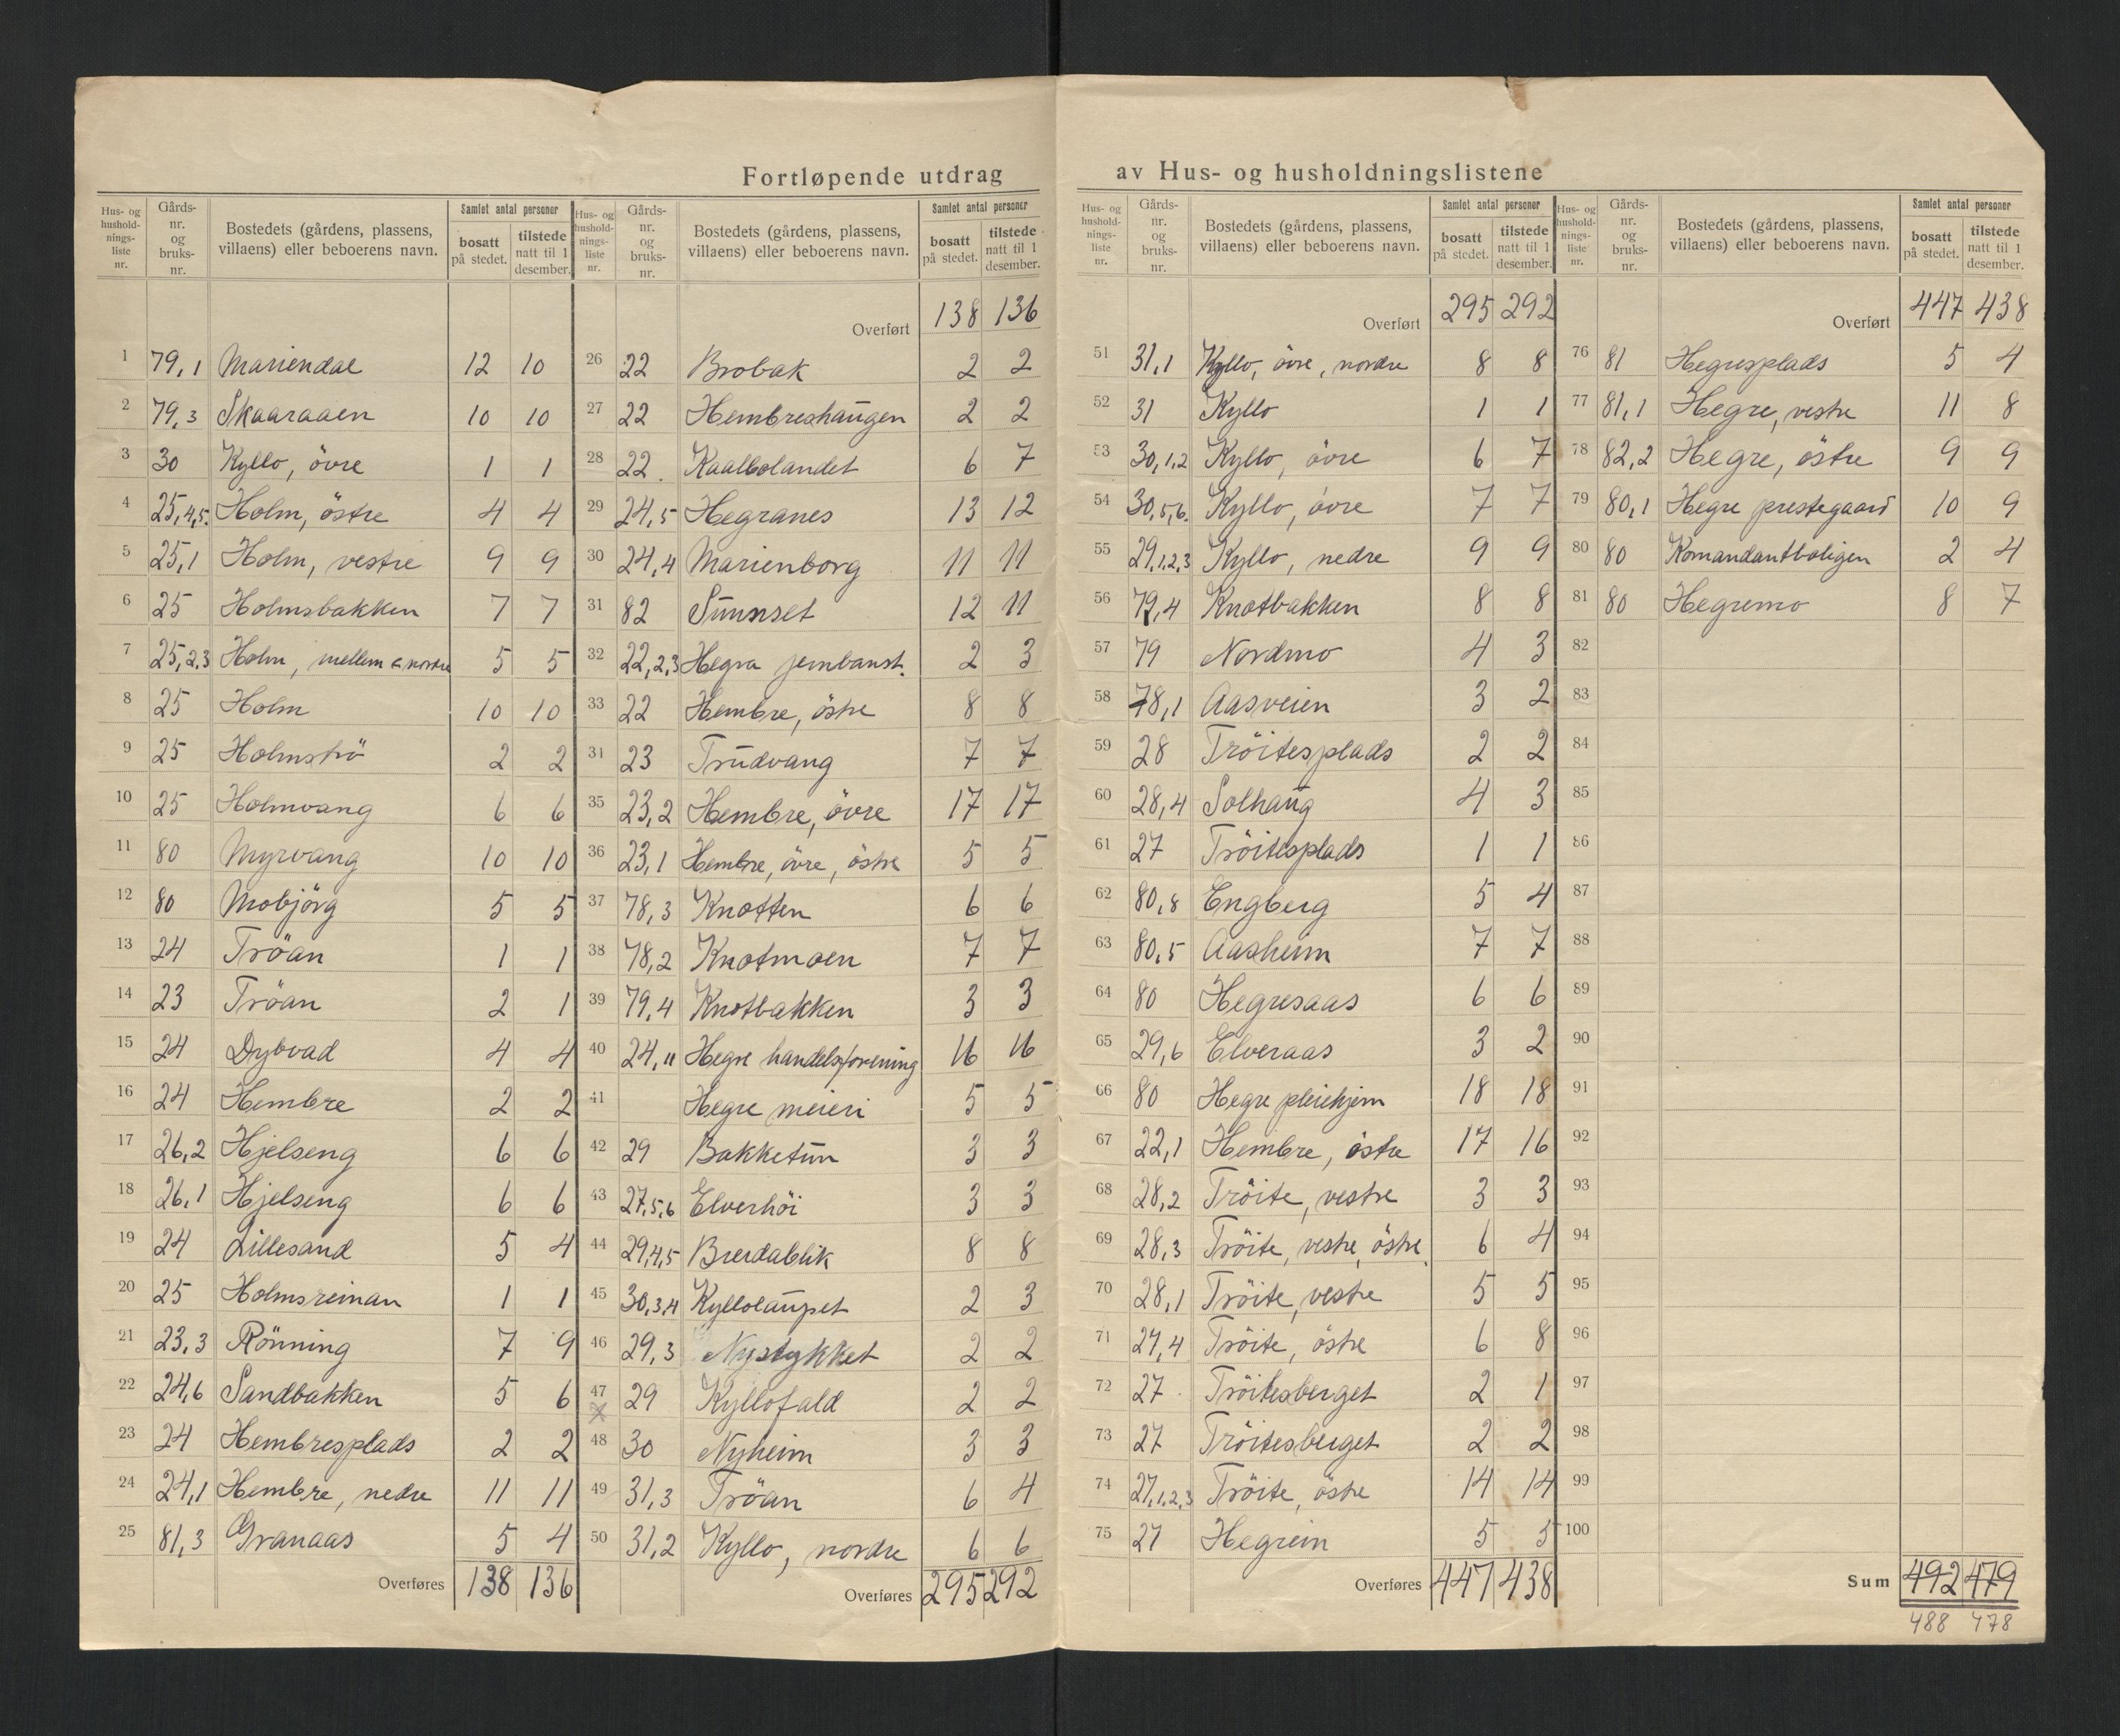 Fortløpende utdrag av Hus- og husholdningslistene
Hus- og hushold-nings-liste nr. | Gårds-nr. og bruks-nr. | Bostedets (gårdens, plassens, villaens) eller beboerens navn. | Samlet antal personer | bosatt på stedet. | tilstede natt til 1 desember.
1 79,1 Mariendal 12 10
2 79,3 Skaaraaen 10 10
3 30 Kyllo, övre 1 1
4 25,4,5. Holm, östre 4 4
5 25,1 Holm, vestre 9 9
6 25 Holmsbakken 7 7
7 25,2,3 Holm, mellem & nordre 5 5
8 25 Holm 10 10
9 25 Holmströ 2 2
10 25 Holmvang 6 6
11 80 Myrvang 10 10
12 80 Mobjörg 5 5
13 24 Tröan 1 1
14 23 Tröan 2 1
15 24 Dybvad 4 4
16 24 Hembre 2 2
17 26,2 Hjelseng 6 6
18 26,1 Hjelseng 6 6
19 24 Lillesand 5 4
20 25 Holmsreinan 1 1
21 23,3 Rönning 7 9
22 24,6 Sandbakken 5 6
23 24 Hembresplads 2 2
24 24,1 Hembre, nedre 11 11
25 81,3 Granaas 5 4
Overføres 138 136
Hus- og hushold-nings-liste nr. | Gårds-nr. og bruks-nr. | Bostedets (gårdens, plassens, villaens) eller beboerens navn. | Samlet antal personer | bosatt på stedet. | tilstede natt til 1 desember.
Overført 138 136
26 22 Brobak 2 2
27 22 Hembreshaugen 2 2
28 22. Kaalbolandet 6 7
29 24,5 Hegranes 13 12
30 24,4 Marienborg 11 11
31 82 Sunnset 12 11
32 22,2,3 Hegra jernbanst. 2 3
33 22 Hembre, östre 8 8
31 23 Trudvang 7 7
35 23,2 Hembre, övre 17 17
36 23,1 Hembre, övre, östre 5 5
37 78,3 Knotten 6 6
38 78,2 Knotmoen 7 7
39 79,4 Knotbakken 3 3
40 24,11 Hegre handelsforening 16 16
41 Hegre meieri 5 5
42 29 Bakketun 3 3
43 27,5,6 Elverhöi 3 3
44 29,4,5 Breidablik 8 8
45 30,3,4 Kyllolaupet 2 3
46 29,3 Nystykket 2 2
47 29 Kyllofald 2 2
x
48 30 Nyheim 3 3
49 31,3 Tröan 6 4
50 31,2 Kyllo, nordre 6 6
Overføres 295 292
Hus- og hushold-nings-liste nr. | Gårds-nr. og bruks-nr. | Bostedets (gårdens, plassens, villaens) eller beboerens navn. | Samlet antal personer | bosatt på stedet. | tilstede natt til 1 desember.
Overført 295 292
51 31,1 Kyllo, övre, nordre 8 8
52 31 Kyllo 1 1
53 30,1,2 Kyllo, övre 6 7
54 30,5,6. Kyllo, övre 7 7
55 29,1,2,3 Kyllo, nedre 9 9
56 79,4 Knotbakken 8 8
57 79 Nordmo 4 3
58 78,1 Aasveien 3 2
59 28 Tröitesplads 2 2
60 28,4 Solhaug 4 3
61 27 Tröitesplads 1 1
62 80,8 Engberg 5 4
63 80,5 Aasheim 7 7
64 80 Hegresaas 6 6
65 29,6 Elveraas 3 2
66 80 Hegre pleiehjem 18 18
67 22,1 Hembre, östre 17 16
68 28,2 Tröite, vestre 3 3
69 28,3 Tröite, vestre, östre. 6 4
70 28,1 Tröite, vestre 5 5
71 27,4 Tröite, östre 6 8
72 27. Tröitesberget 2 1
73 27 Tröitesberget 2 2
74 27,1,2,3 Tröite, östre 14 14
75 27 Hegrein 5 5
Overføres 447 438
Hus- og husholdnings-liste nr. | Gårds-nr. og bruks-nr. | Bostedets (gårdens, plassens, villaens) eller beboerens navn. | Samlet antal personer | bosatt på stedet. | tilstede natt til 1 desember.
Overført 447 438
76 81 Hegresplads 5 4
77 81,1 Hegre, vestre 11 8
78 82,2 Hegre, östre 9 9
79 80,1 Hegre prestegaard 10 9
80 80 Komandantboligen 2 4
81 80 Hegremo 8 7
82
83
84
85
86
87
88
89
90
91
92
93
94
95
96
97
98
99
100
Sum 492 479
488 478